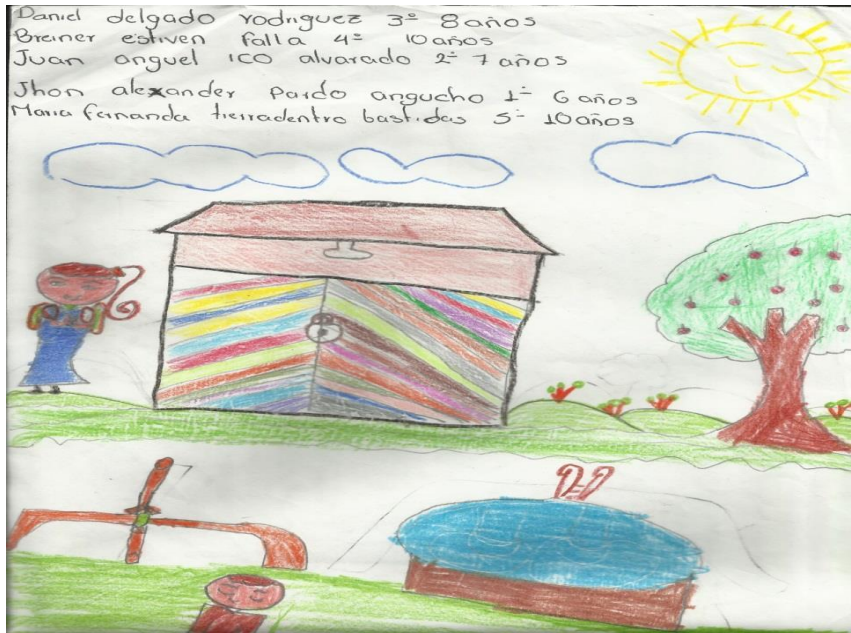 Daniel delgado rodriguez 3º 8 años
Breiner estiven falla 4º 10 años
Juan anguel ico alvarado 2º 7 años
Jhon alexander pardo angucho 1º 6 años
Maria fernanda tierradentro bastidas 5º 10 años